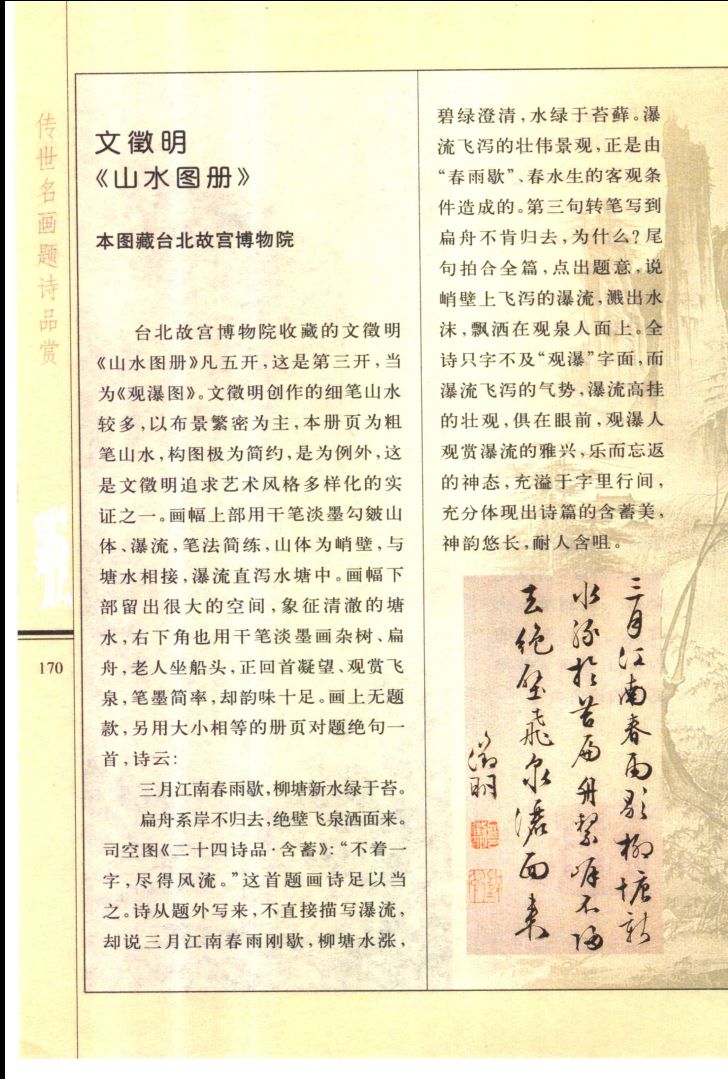 传世名画题诗品赏
170
文徵明
《山水图册》
本图藏台北故宫博物院
台北故宫博物院收藏的文徵明
《山水图册》凡五开，这是第三开，当
为《观瀑图》。文徵明创作的细笔山水
较多，以布景繁密为主，本册页为粗
笔山水，构图极为简约，是为例外，这
是文徵明追求艺术风格多样化的实
证之一。画幅上部用干笔淡墨勾皴山
体、瀑流，笔法简练，山体为峭壁，与
塘水相接，瀑流直泻水塘中。画幅下
部留出很大的空间，象征清澈的塘
水，右下角也用干笔淡墨画杂树、扁
舟，老人坐船头，正回首凝望、观赏飞
泉，笔墨简率，却韵味十足。画上无题
款，另用大小相等的册页对题绝句一
首，诗云：
三月江南春雨歇，柳塘新水绿于苔。
扁舟系岸不归去，绝壁飞泉洒面来。
司空图《二十四诗品·含蓄》：“不着一
字，尽得风流。”这首题画诗足以当
之。诗从题外写来，不直接描写瀑流，
却说三月江南春雨刚歇，柳塘水涨，
碧绿澄清，水绿于苔藓。瀑
流飞泻的壮伟景观，正是由
“春雨歇”、春水生的客观条
件造成的。第三句转笔写到
扁舟不肯归去，为什么？尾
句拍合全篇，点出题意，说
峭壁上飞泻的瀑流，溅出水
沫，飘洒在观泉人面上。全
诗只字不及“观瀑”字面，而
瀑流飞泻的气势，瀑流高挂
的壮观，俱在眼前，观瀑人
观赏瀑流的雅兴，乐而忘返
的神态，充溢于字里行间，
充分体现出诗篇的含蓄美，
神韵悠长，耐人含咀。
三月江南春雨歇柳塘新
水绿於苔扁舟繫岸不歸
去絕壁飛泉灑面來
徵明